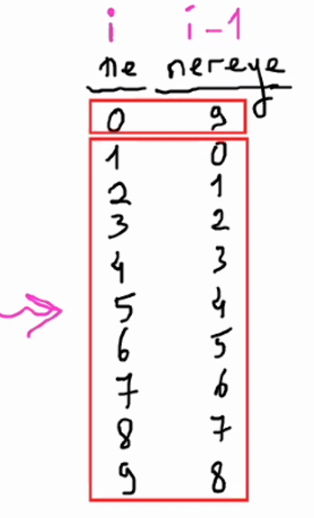 i i-1
ne nereye
0 9
1 0
2 1
3 2
4 3
5 4
6 5
7 6
8 7
9 8